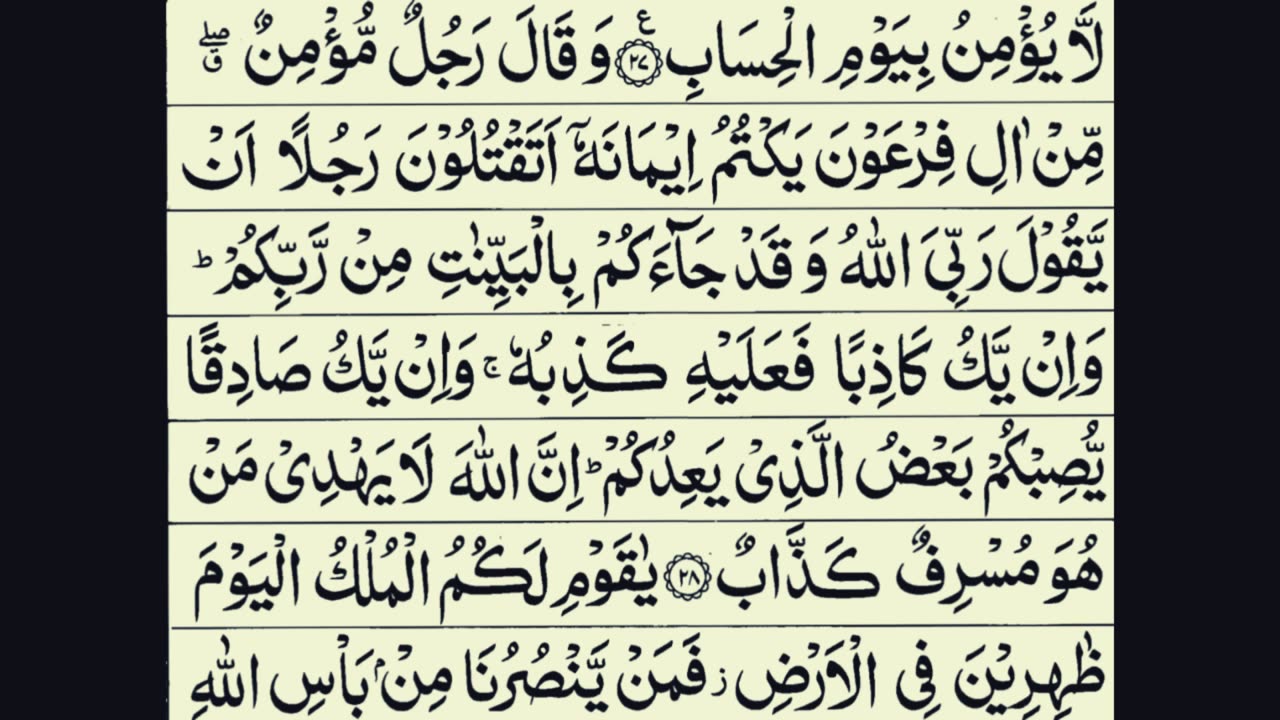 لَّا يُؤْمِنُ بِيَوْمِ الْحِسَابِ ﴿۲۷﴾ ع وَ قَالَ رَجُلٌ مُّؤْمِنٌ ۖق
مِّنْ اٰلِ فِرْعَوْنَ يَكْتُمُ اِيْمَانَهٗۤ اَتَقْتُلُوْنَ رَجُلًا اَنْ
يَّقُوْلَ رَبِّيَ اللّٰهُ وَ قَدْ جَآءَكُمْ بِالْبَيِّنٰتِ مِنْ رَّبِّكُمْ ؕ
وَاِنْ يَّكُ كَاذِبًا فَعَلَيْهِ كَذِبُهٗ ۚ وَاِنْ يَّكُ صَادِقًا
يُّصِبْكُمْ بَعْضُ الَّذِىْ يَعِدُكُمْ ؕ اِنَّ اللّٰهَ لَا يَهْدِىْ مَنْ
هُوَ مُسْرِفٌ كَذَّابٌ ﴿۲۸﴾ يٰقَوْمِ لَكُمُ الْمُلْكُ الْيَوْمَ
ظٰهِرِيْنَ فِى الْاَرْضِ ز فَمَنْ يَّنْصُرُنَا مِنْۢ بَاْسِ اللّٰهِ